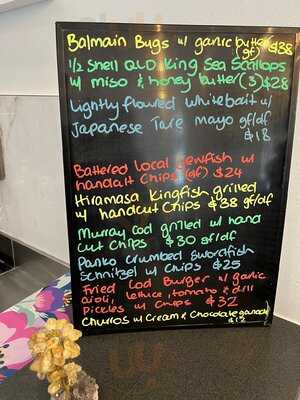 Balmain Bugs w/ garlic butter
(gf) $38
1/2 Shell QLD King Sea Scallops
w/ miso & honey butter (3) $28
Lightly floured whitebait w/
Japanese Tare mayo gf/df
$18
Battered local Jewfish w/
handcut Chips (df) $24
Hiramasa Kingfish grilled
w/ handcut Chips $38 gf/df
Murray Cod grilled w/ hand
cut Chips $30 gf/df
Panko crumbed Swordfish
Schnitzel w/ Chips $25
Fried Cod Burger w/ garlic
aioli, lettuce, tomato & dill
Pickles w/ Chips $32
Churros w/ Cream & Chocolate ganache
$12